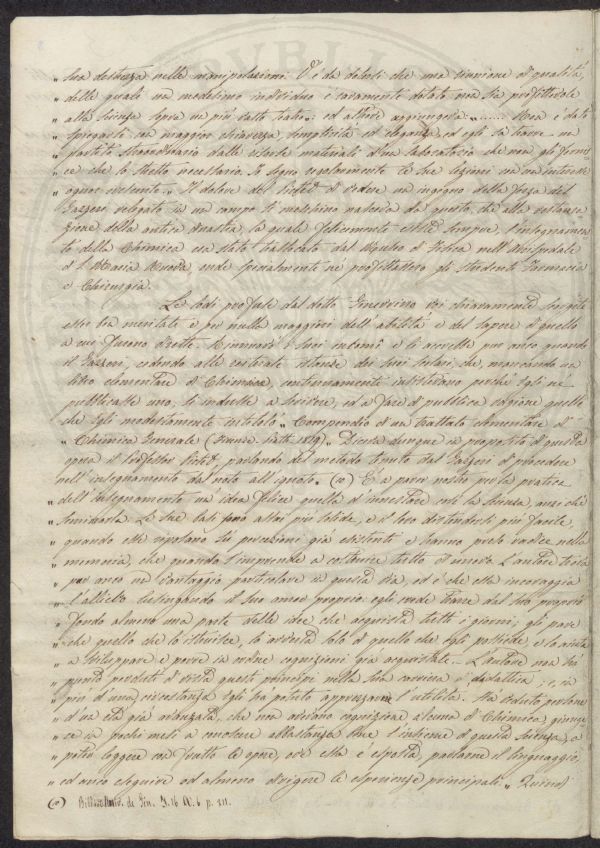 „ sua destrezza nelle manipolazioni. V'è da dolersi che una riunione di qualità,
„ delle quali un medesimo individuo è raramente dotato non sia profittevole
„ alla scienza sopra un più vasto teatro: ed altrove aggiungeva „ ...... Non è dato
„ spiegarsi con maggior chiarezza, semplicità ed eleganza, ed egli sa trarre un
„ partito straordinario dalle risorse materiali d'un laboratorio che non gli forni-
„ sce che lo stretto necessario. Io seguo regolarmente le sue lezioni con un interesse
„ ognor crescente. „ Il dolore del Pictet di vedere un ingegno della forza del
Gazzeri relegato in un campo sì meschino nasceva da questo, che alla restaura-
zione della antica dinastia, la quale felicemente ci regge sempre, l'insegnamen-
to della Chimica era stato traslocato dal Museo di Fisica nell'Arcispedale
di S. Maria Nuova, onde specialmente ne profittassero gli studenti Farmacia
e Chirurgia.
Le lodi profuse dal dotto Ginevrino voi chiaramente scorgete
esser ben meritate e per nulla maggiori dell'abilità e del sapere di quello
a cui furono dirette. Rimunerò i suoi encomî e li accrebbe pur anco quando
il Gazzeri, cedendo alle reiterate istanze dei suoi scolari, che, mancando un
libro elementare di Chimica, continuamente insistevano perchè Egli ne
pubblicasse uno, si indusse a scrivere, ed a fare di pubblica ragione quello
che Egli modestamente intitolò „ Compendio d'un trattato elementare di
„ Chimica Generale (Firenze 1819) „ Diceva dunque in proposito di questa
opera il Professor Pictet, parlando del metodo tenuto dal Gazzeri di procedere
nell'insegnamento dal noto all'ignoto. (10) „ È a parer nostro per la pratica
„ dell'insegnamento un'idea felice quella d'innestare così la scienza, anzi che
„ seminarla. Le sue basi sono assai più solide, e il loro distendersi più facile,
„ quando esse riposano su percezioni già esistenti e hanno preso radice nella
„ memoria, che quando s'imprende a costruire tutto di nuovo. L'autore trova
„ pur anco un vantaggio particolare in questa via, ed è che essa incoraggia
„ l'allievo lusingando il suo amor proprio: egli vede trarre dal suo proprio
„ fondo almeno una parte delle idee che acquista tutti i giorni; gli pare
„ che quello che lo istruisce, lo avverta solo di quello che egli possiede, e lo aiuta
„ a sviluppare e porre in ordine cognizioni già acquistate. — L'autore non ha
„ perduti di vista questi principj nella sua carriera didattica: e, in
„ più d'una circostanza egli ha potuto apprezzarne l'utilità. Ha veduto persone
„ d'un'età già avanzata, che non avevano cognizione alcuna di Chimica, giunge-
„ re in pochi mesi a conoscere abbastanza bene l'insieme di questa scienza, a
„ poter leggere con frutto le opere, ove essa è esposta, parlarne il linguaggio,
„ ed anco eseguire ed almeno dirigere le esperienze principali. „ Quindi
(10) Bibl. Univ. de Gen. T. 16 N.° 6 p. 211.